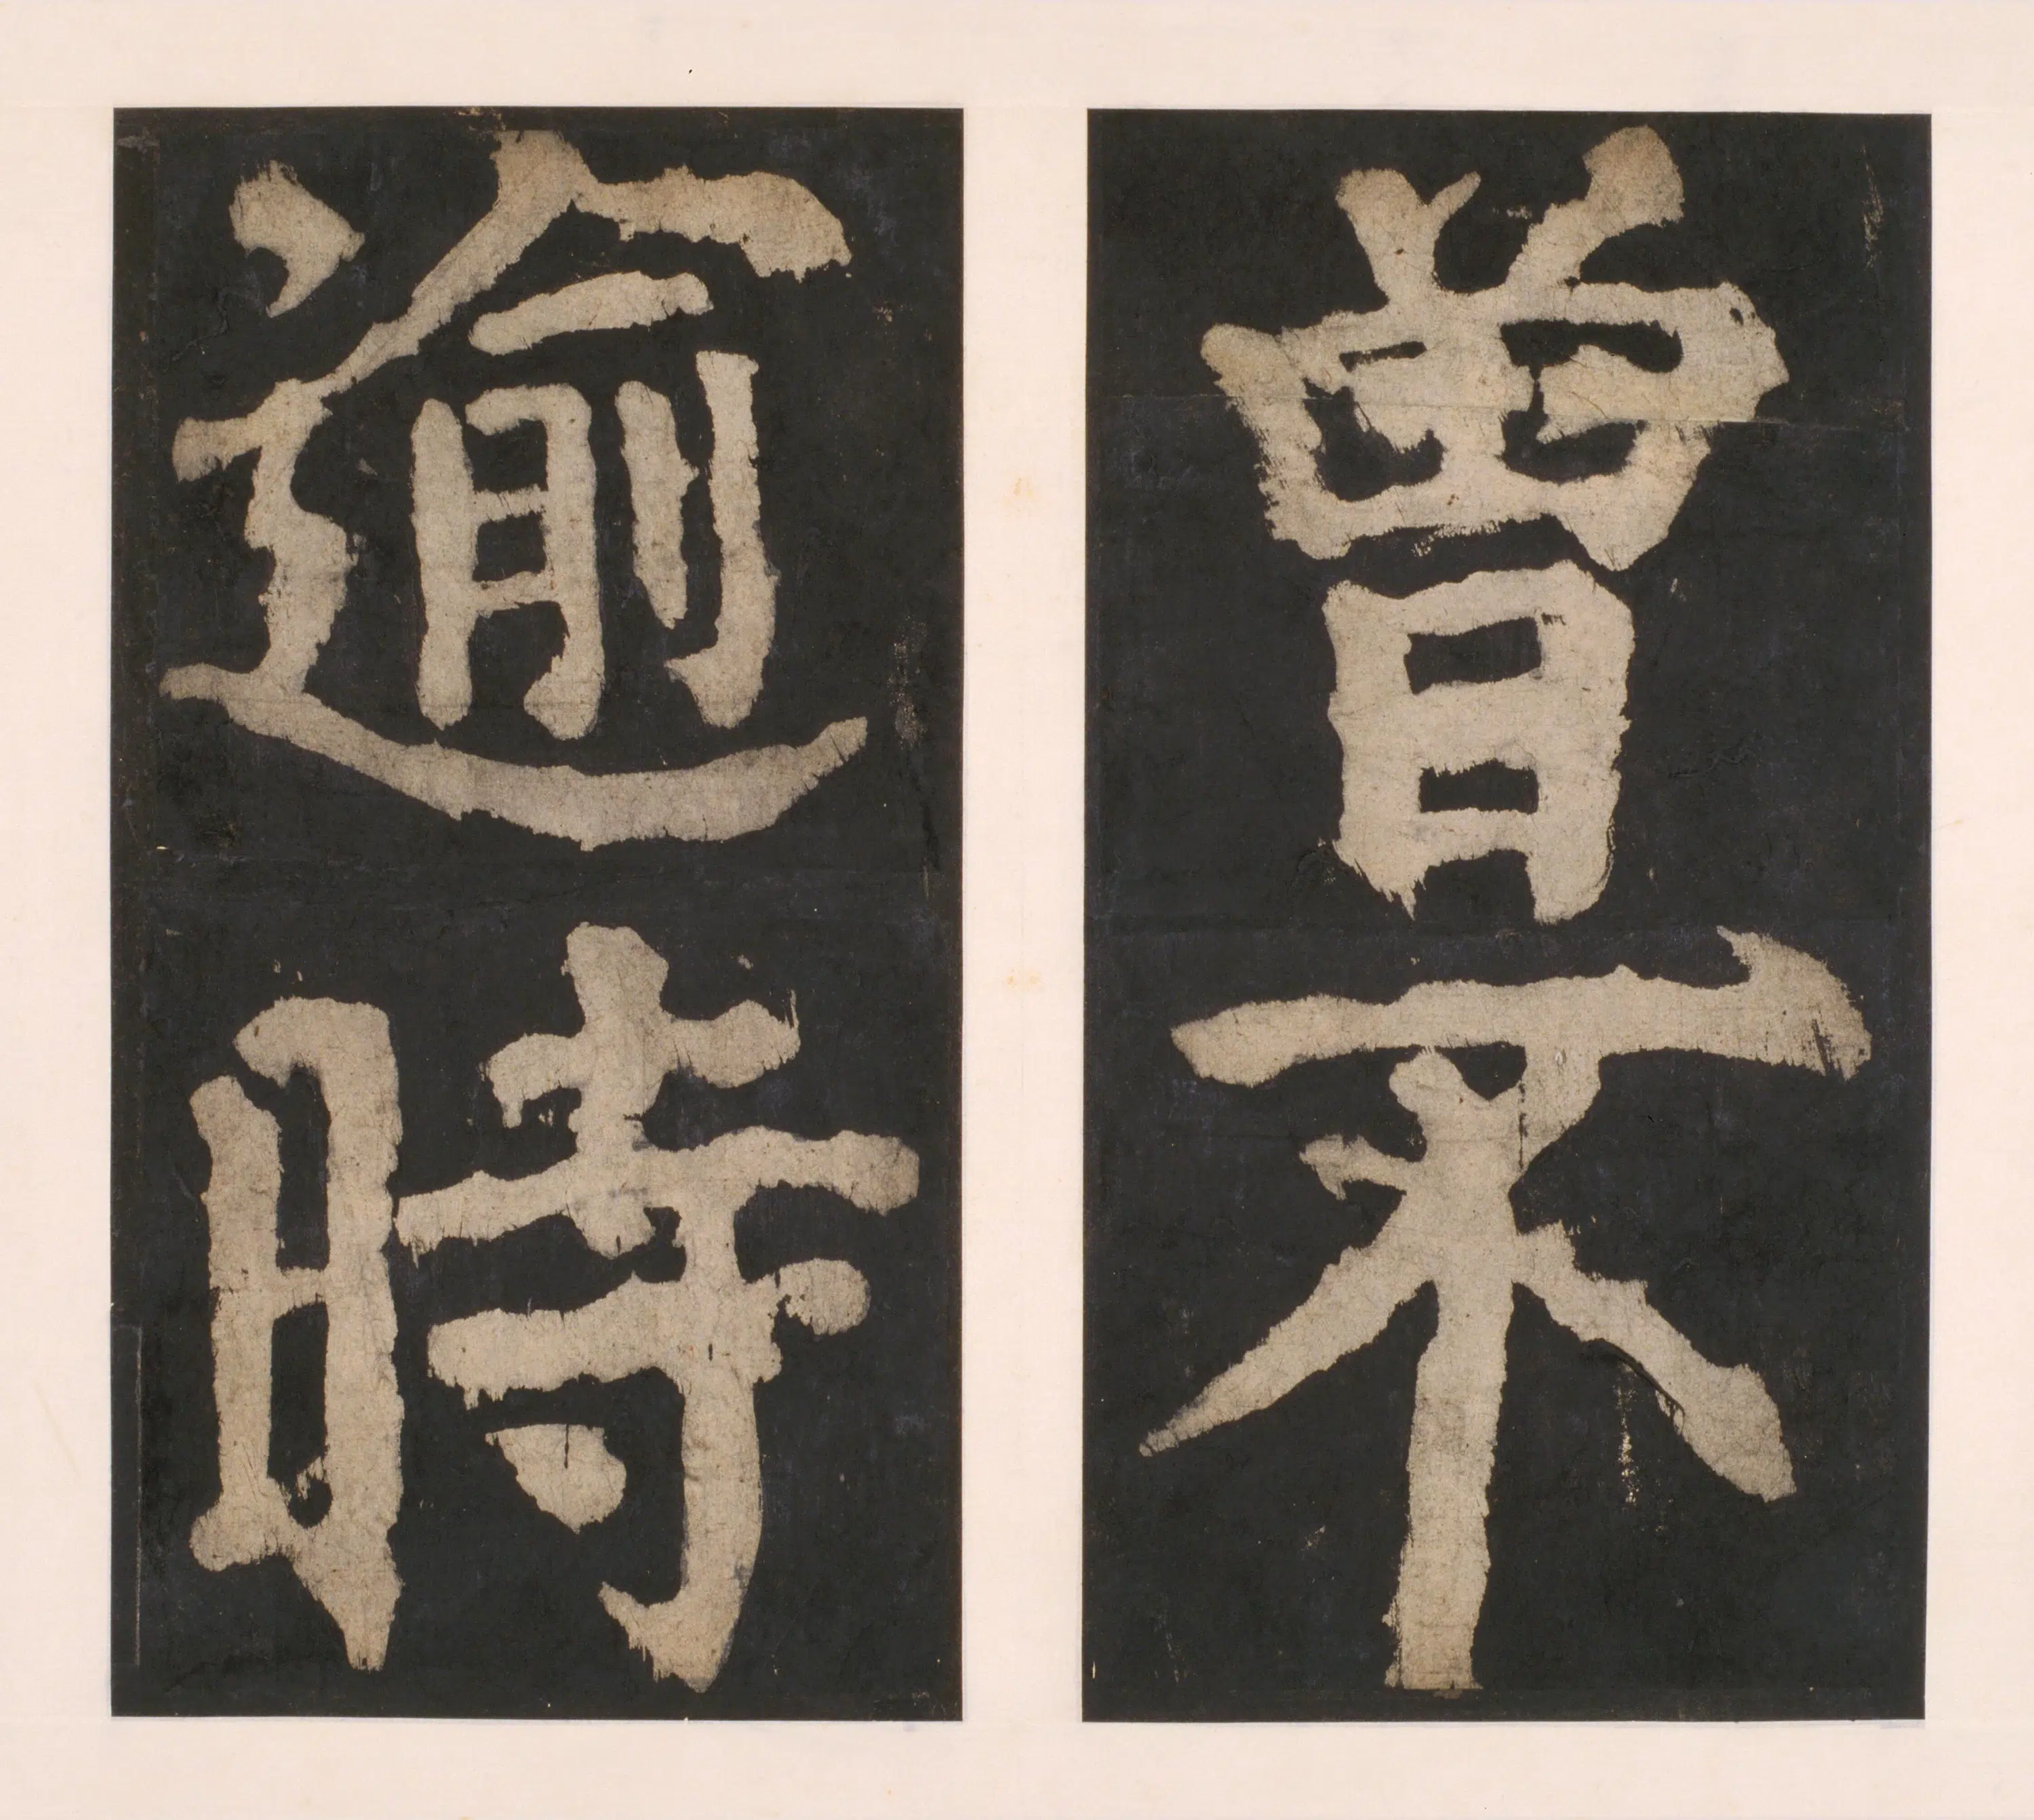 曾不
逾時